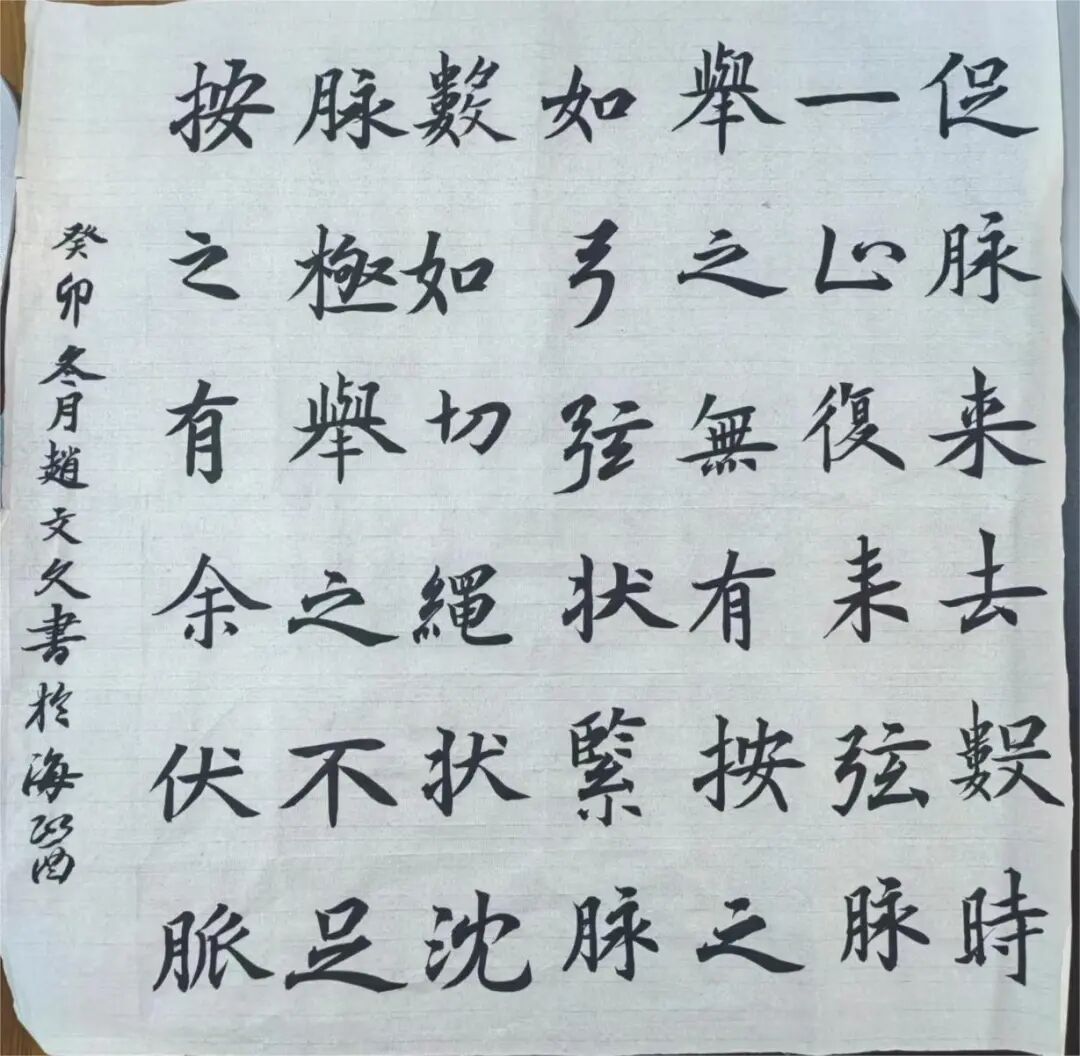 促脉来去數時
一止復来弦脉
舉之無有按之
如弓弦状緊脉
數如切繩状沈
脉極舉之不足
按之有余伏脈
癸卯冬月趙文久書於海